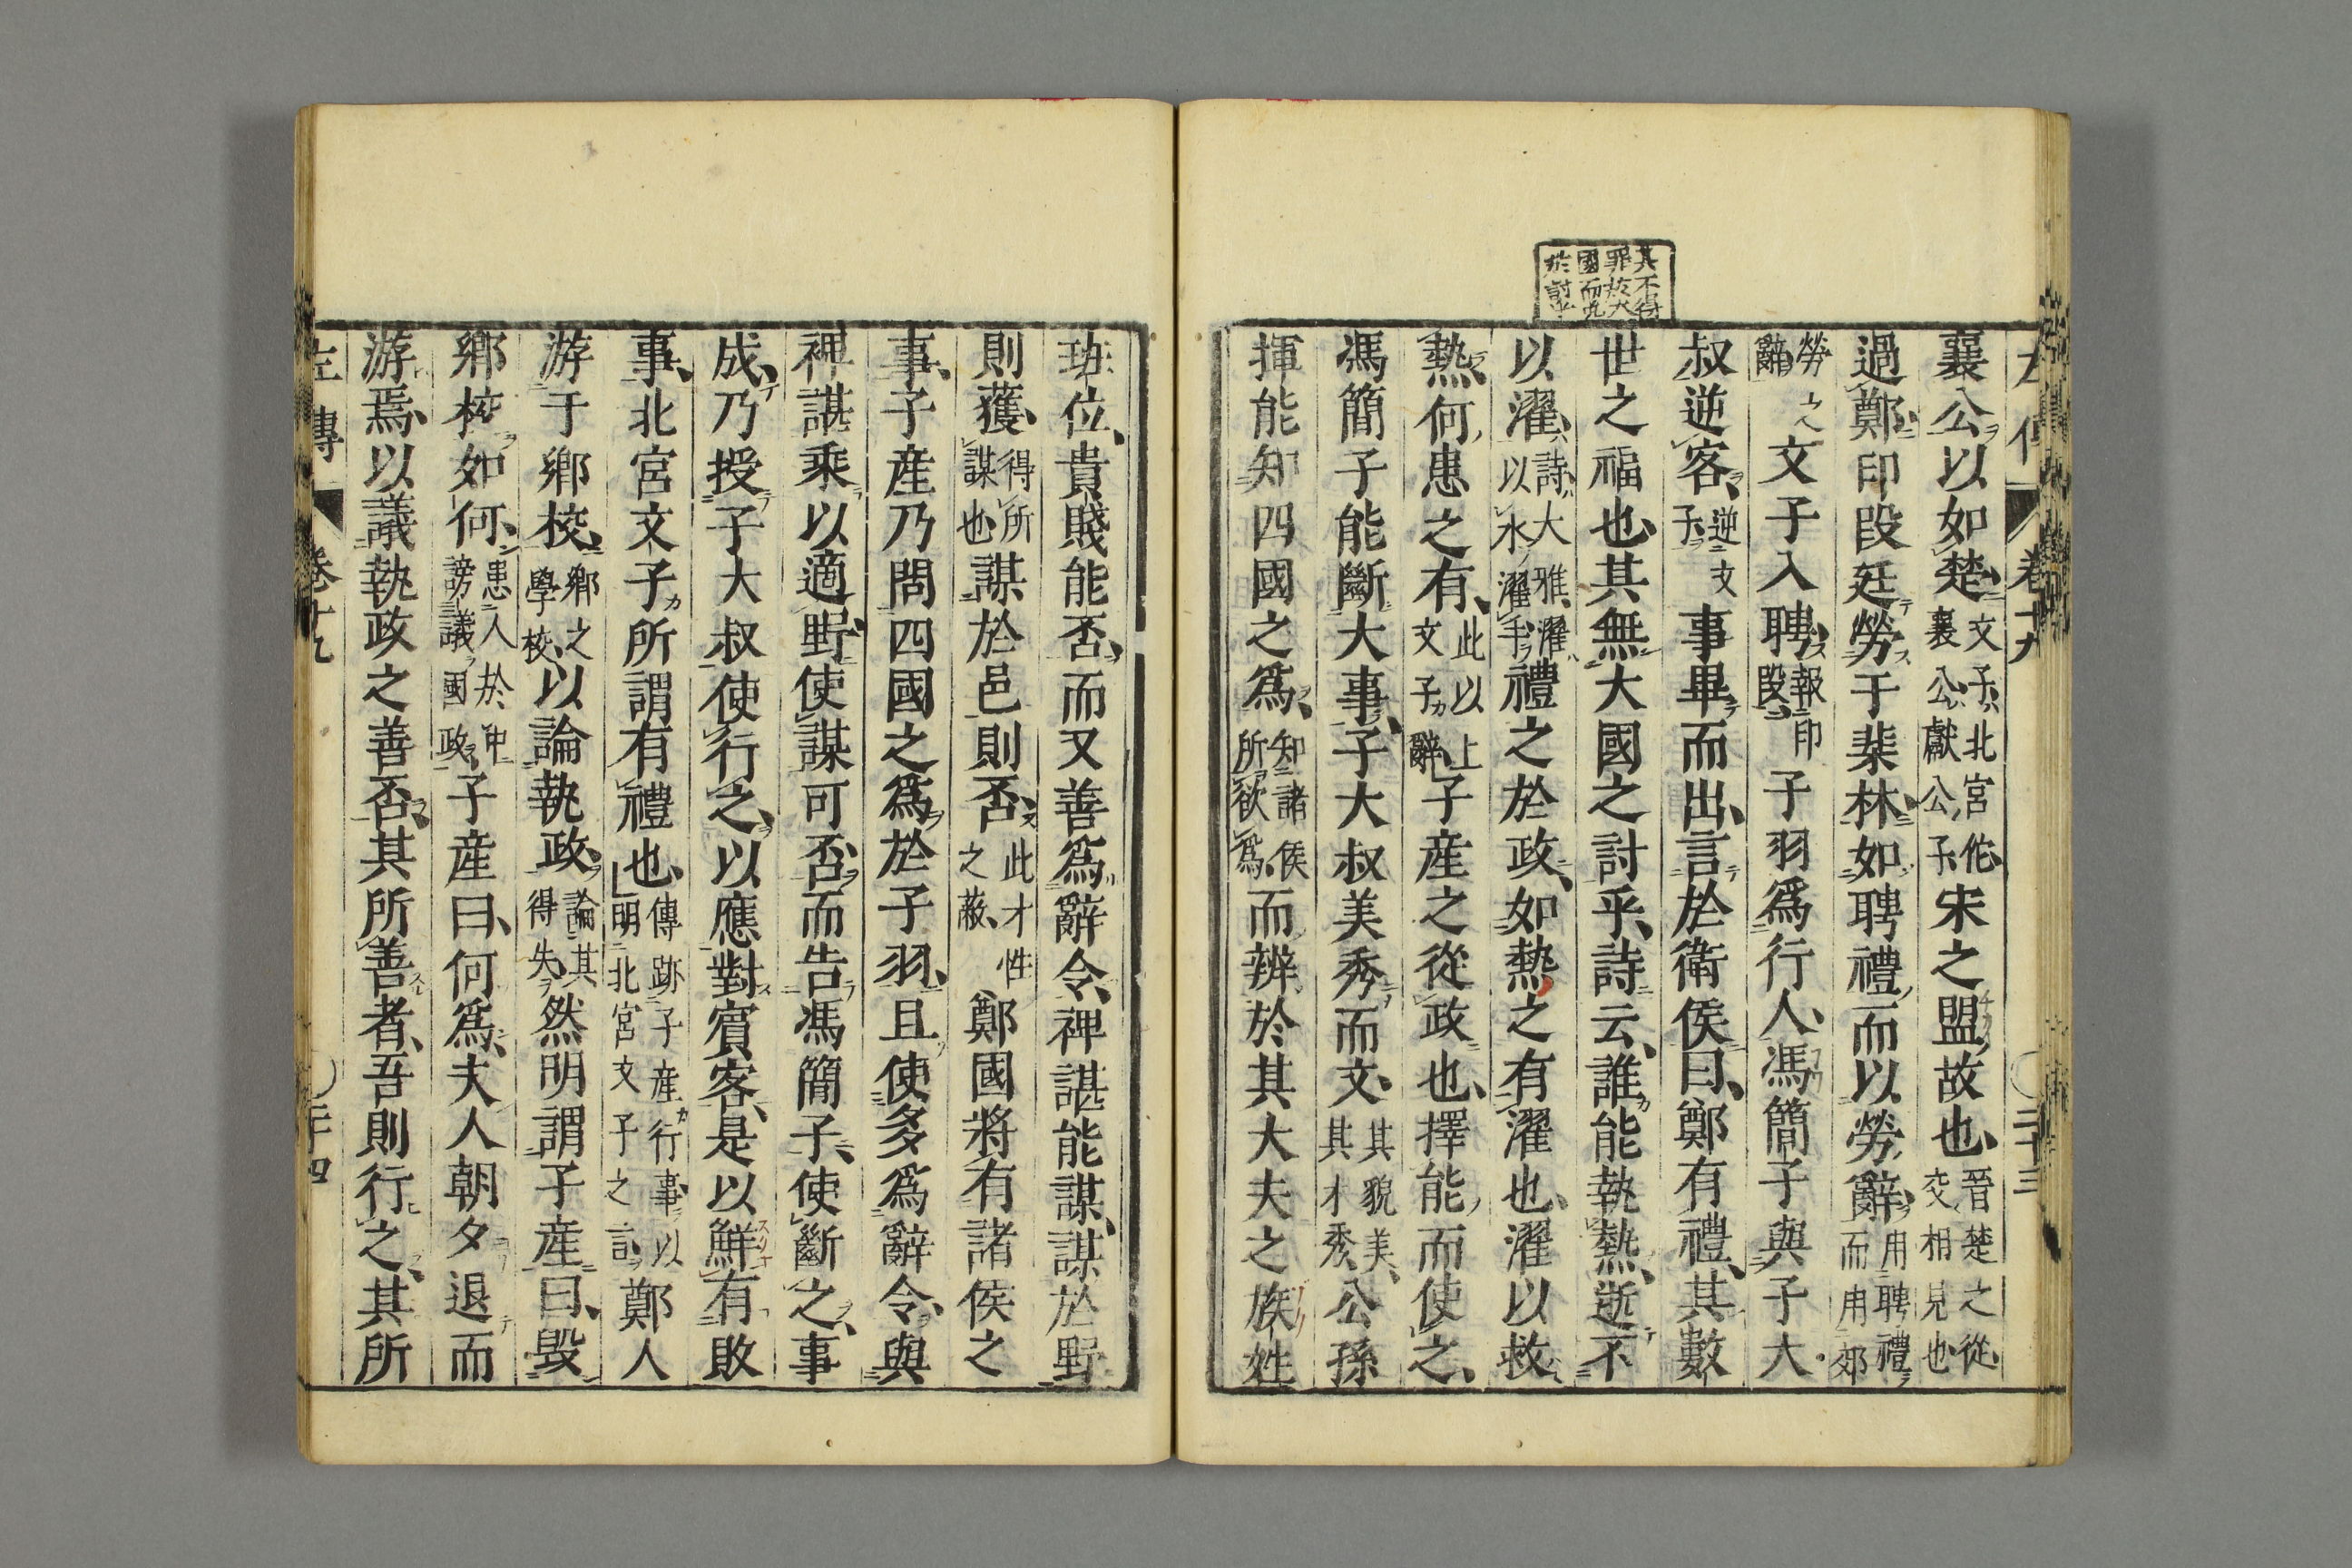 左傳 卷十九 二十三
襄公以如楚文子北宮佗襄公獻公子宋之盟故也晉楚之從交相見也
過鄭印段廷勞于棐林如聘禮而以勞辭用聘禮而用郊
勞之辭文子入聘報印段子羽爲行人馮簡子與子大
叔逆客逆文子事畢而出言於衛侯曰鄭有禮其數
世之福也其無大國之討乎詩云誰能執熱逝不
以濯詩大雅濯以水濯手禮之於政如熱之有濯也濯以救
熱何患之有此以上文子辭子産之從政也擇能而使之
馮簡子能斷大事子大叔美秀而文其貌美其才秀公孫
揮能知四國之爲知諸侯所欲爲而辨於其大夫之族姓
其不得
罪於大
國而
於討乎
班位貴賤能否而又善爲辭令裨諶能謀謀於野
則獲得所謀也謀於邑則否此才性之蔽鄭國將有諸侯之
事子産乃問四國之爲於子羽且使多爲辭令與
裨諶乘以適野使謀可否而告馮簡子使斷之事
成乃授子大叔使行之以應對賓客是以鮮有敗
事北宮文子所謂有禮也傳跡子産行事以明北宮文子之言鄭人
游于鄉校鄉之學校以論執政論其得失然明謂子産曰毀
鄉校如何患人於中謗議國政子産曰何爲夫人朝夕退而
游焉以議執政之善否其所善者吾則行之其所
左傳 卷十九 二十四